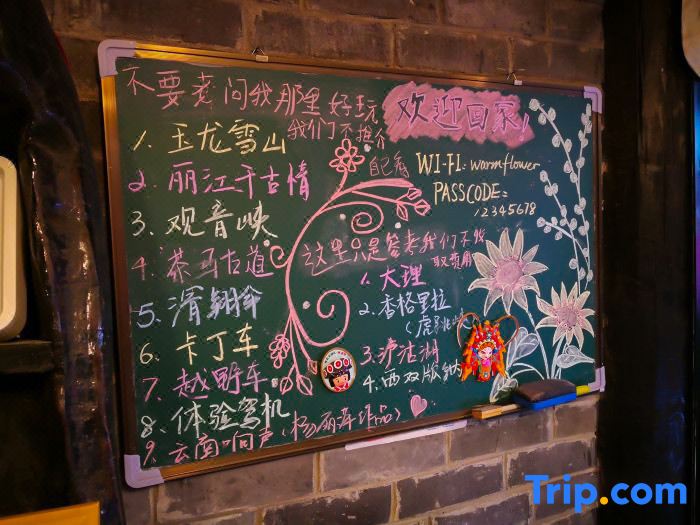 不要老问我那里好玩
我们不推介
自己看
1. 玉龙雪山
2. 丽江千古情
3. 观音峡
4. 茶马古道
5. 滑翔伞
6. 卡丁车
7. 越野车
8. 体验驾机
9. 云南响声（杨丽萍作品）
欢迎回家！
WI-FI: warmflower
PASSCODE:
12345678
这里只是参考我们不收
取费用
1. 大理
2. 香格里拉
（虎跳峡）
3. 泸沽湖
4. 西双版纳
Trip.com